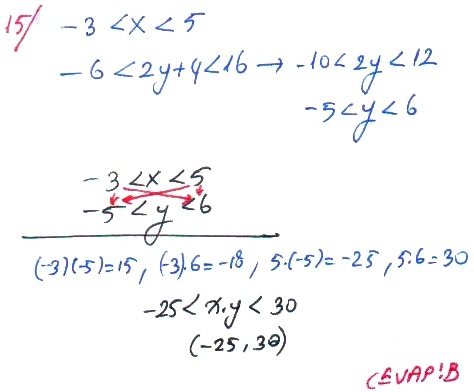 15/ -3 < x < 5
-6 < 2y+4 < 16 → -10 < 2y < 12
-5 < y < 6
-3 < x < 5
-5 < y < 6
(-3)(-5)=15, (-3).6=-18, 5.(-5)=-25, 5.6=30
-25 < x.y < 30
(-25, 30)
CEVAP!B